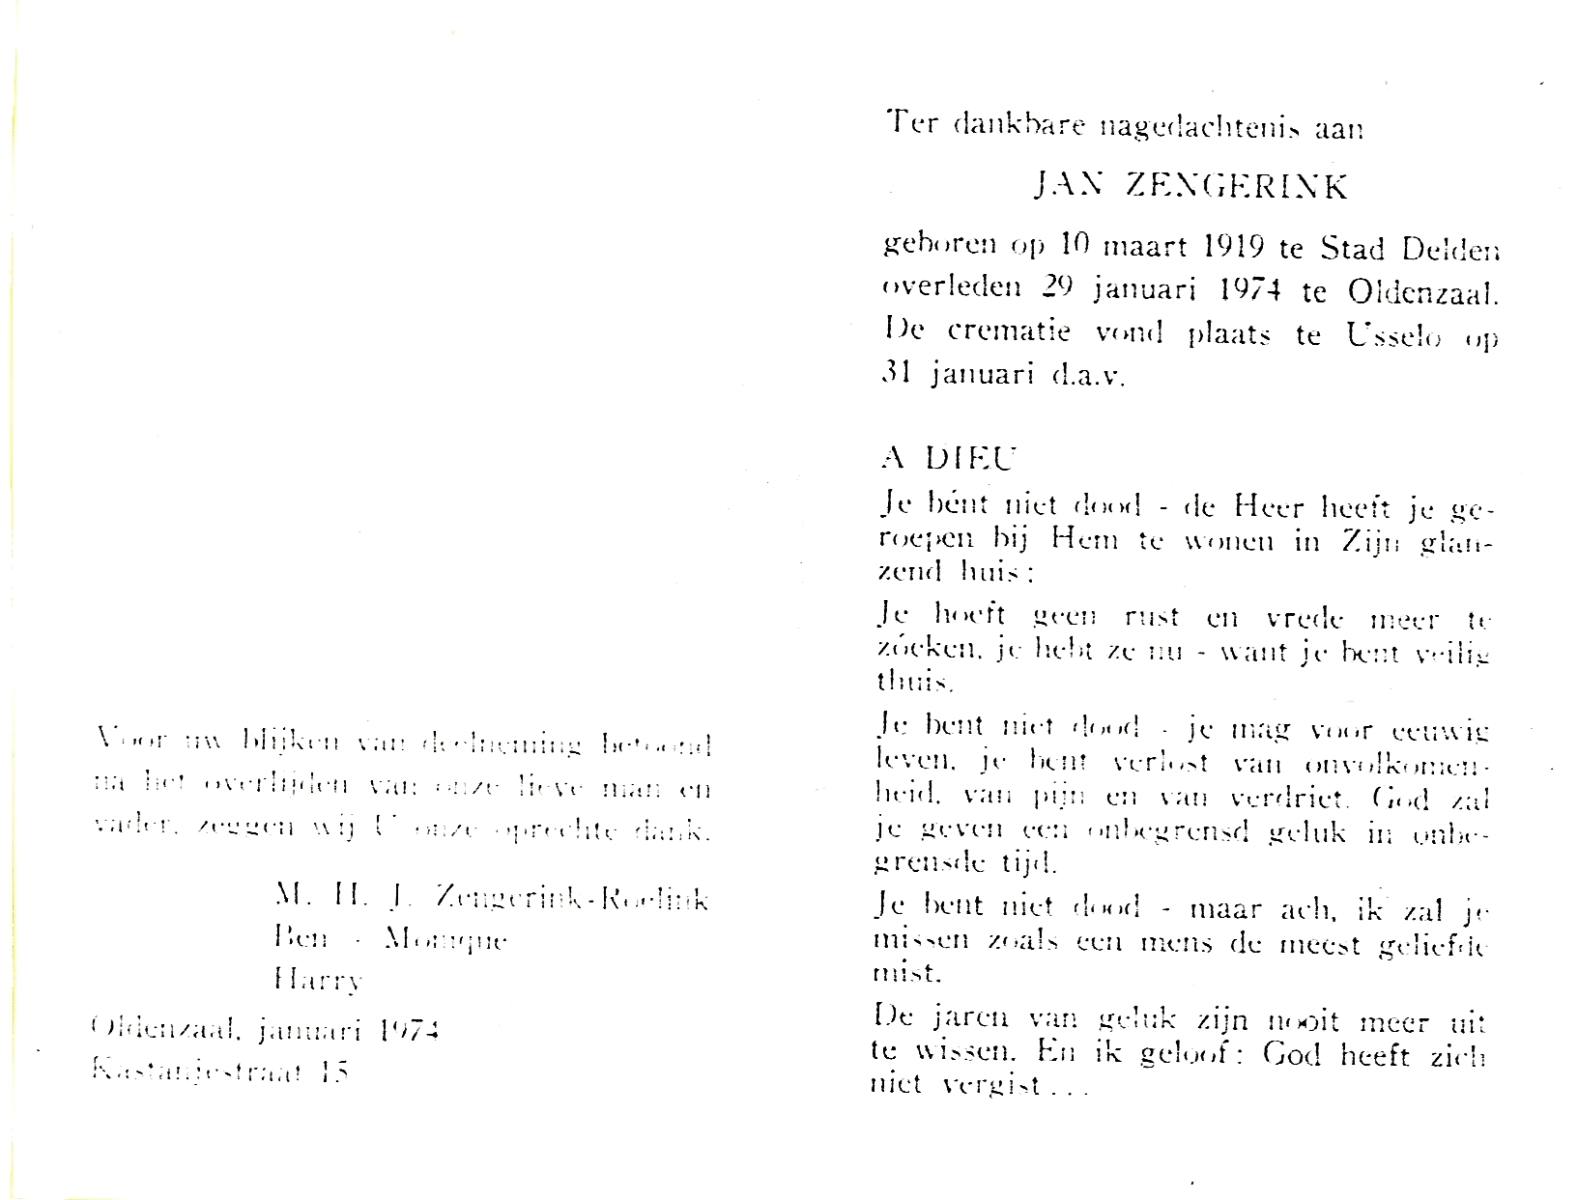 Voor uw blijken van deelneming betoond
na het overlijden van onze lieve man en
vader, zeggen wij U onze oprechte dank.
M. H. J. Zengerink-Roelink
Ben - Monique
Harry
Oldenzaal, januari 1974
Kastanjestraat 15
Ter dankbare nagedachtenis aan
JAN ZENGERINK
geboren op 10 maart 1919 te Stad Delden
overleden 29 januari 1974 te Oldenzaal.
De crematie vond plaats te Usselo op
31 januari d.a.v.
A DIEU
Je bént niet dood - de Heer heeft je ge-
roepen bij Hem te wonen in Zijn glan-
zend huis;
Je hoeft geen rust en vrede meer te
zóeken, je hebt ze nu - want je bent veilig
thuis.
Je bent niet dood - je mag voor eeuwig
leven, je bent verlost van onvolkomen-
heid, van pijn en van verdriet. God zal
je geven een onbegrensd geluk in onbe-
grensde tijd.
Je bent niet dood - maar ach, ik zal je
missen zoals een mens de meest geliefde
mist.
De jaren van geluk zijn nooit meer uit
te wissen. En ik geloof: God heeft zich
niet vergist...